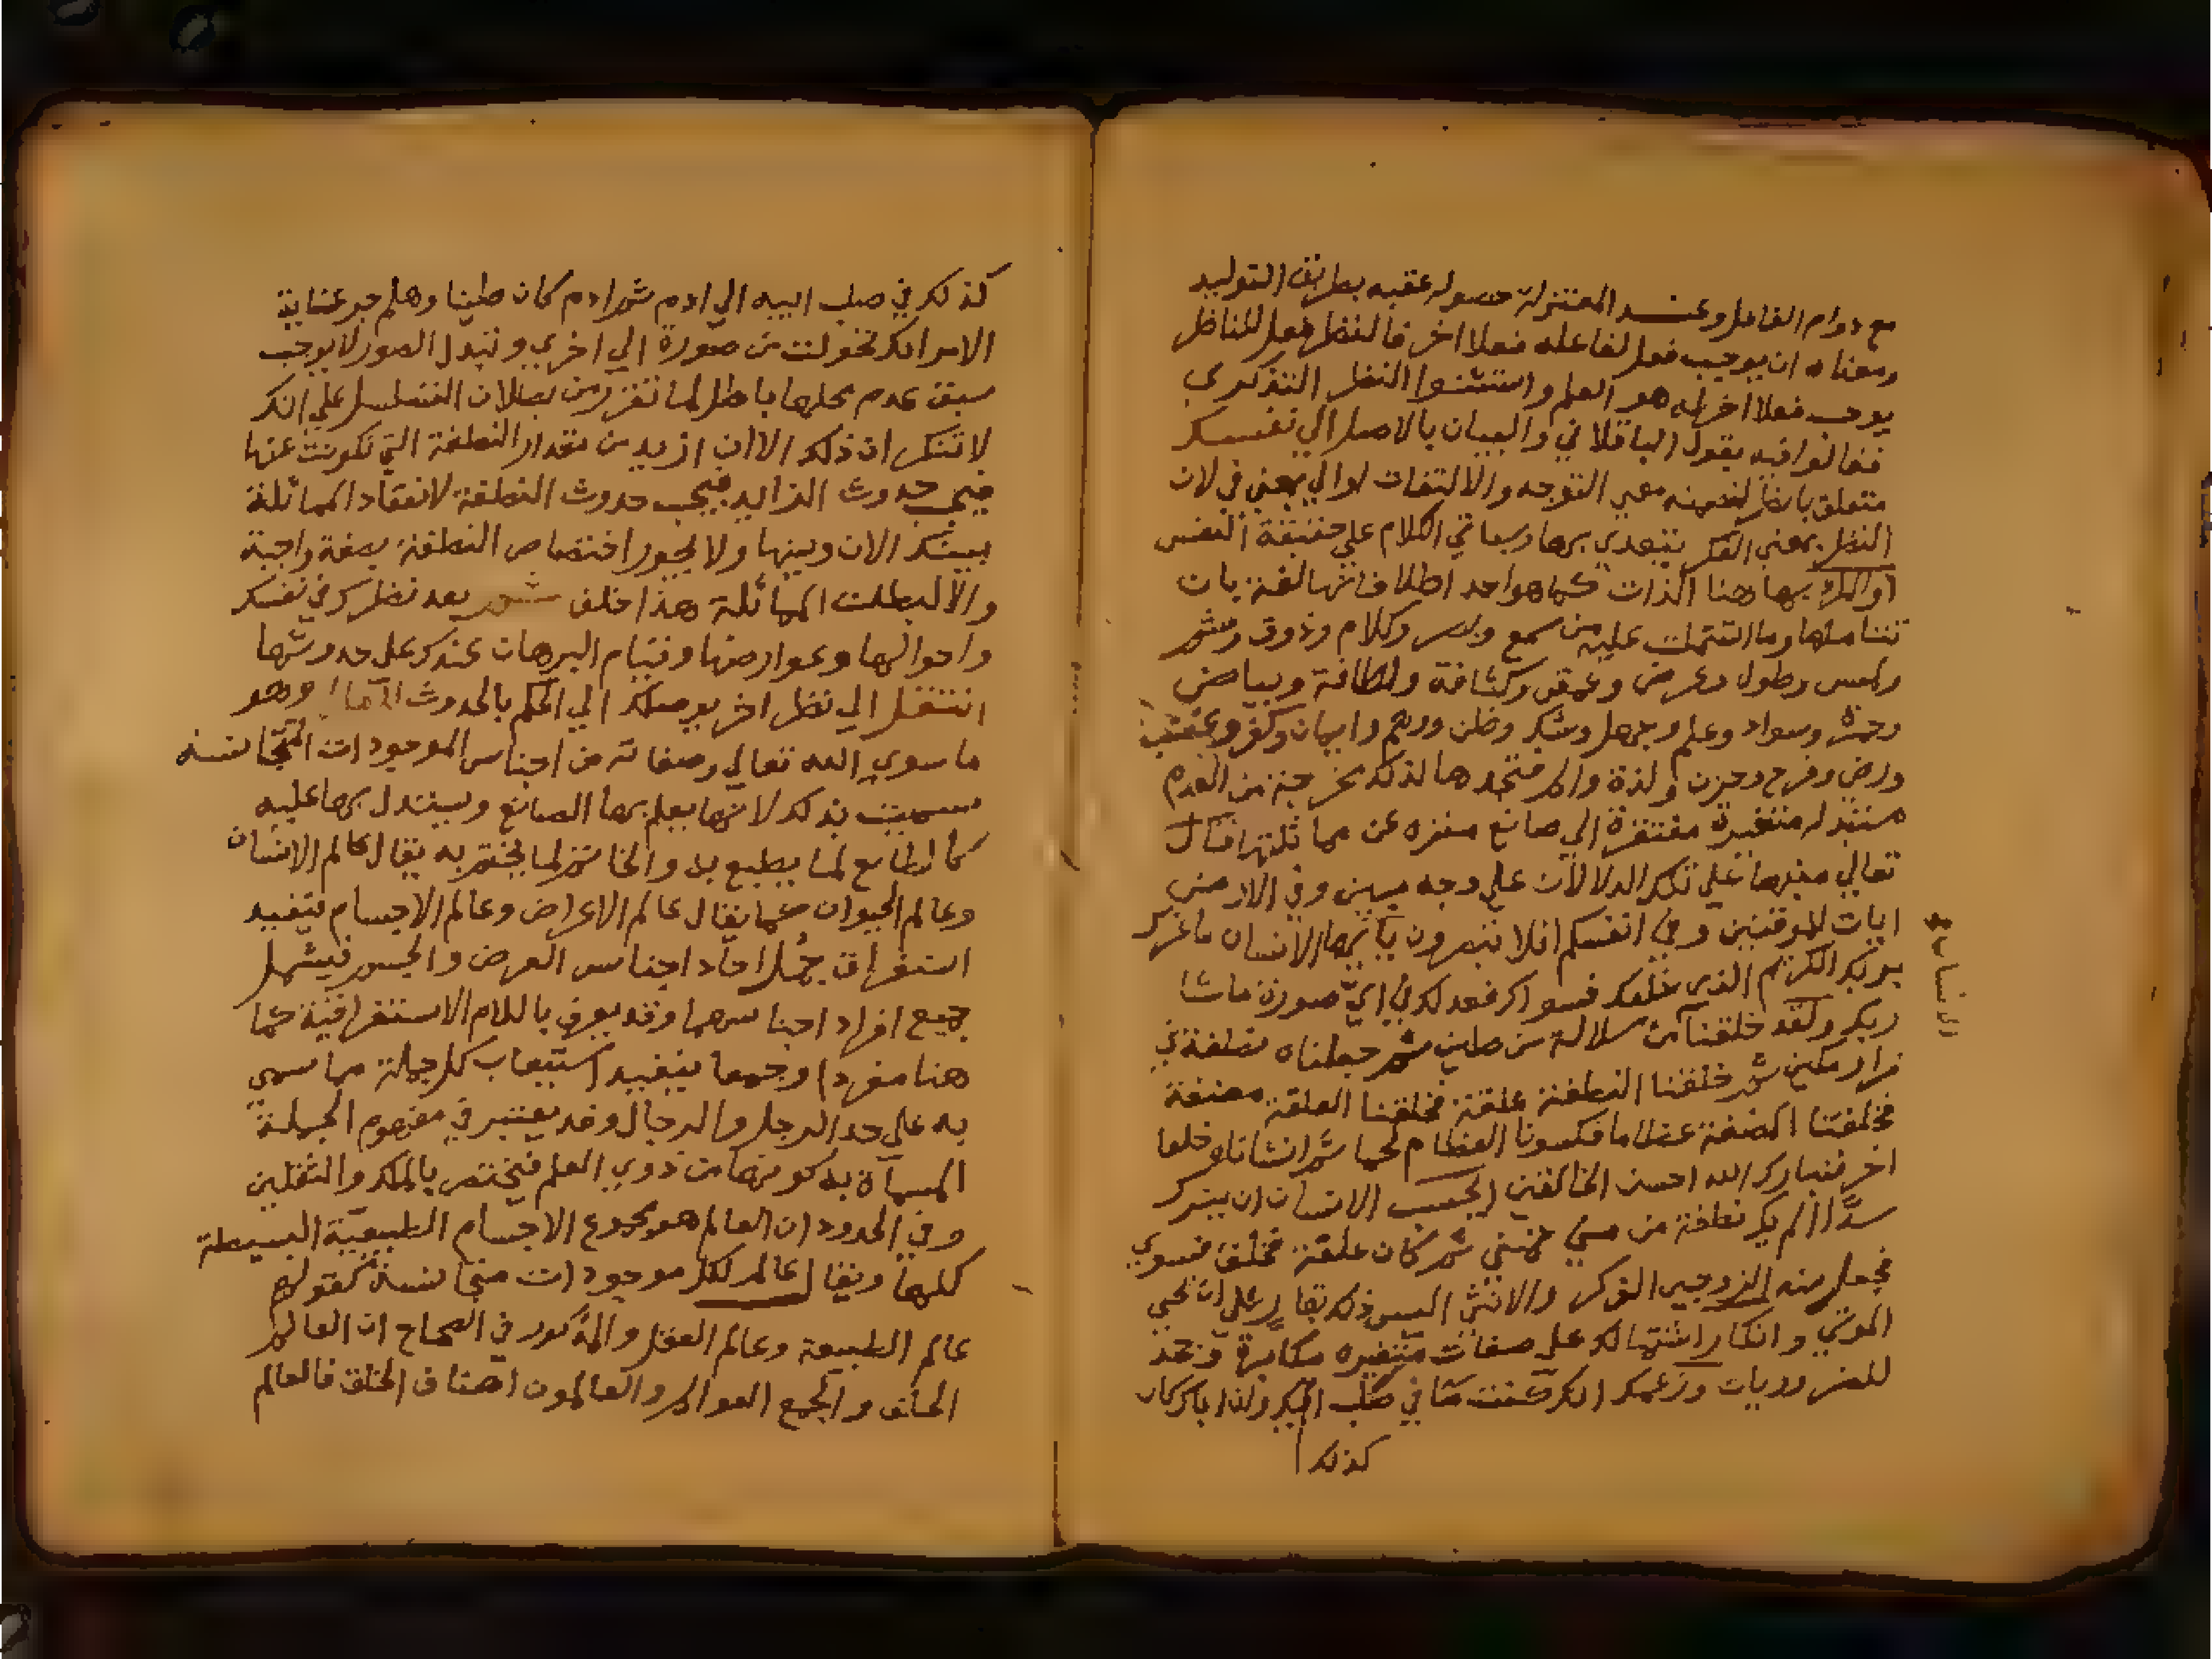 مع دوام الفاعل وعند المعتزلة حصوله عقبه بطريق التوليد
ومعناه ان يوجب فعل لفاعله فعلا اخر فالنظر فعل للناظر
يوجب فعلا اخر له هو العلم واستثنوا النظر التذكري
فقالوا فيه بقول الباقلاني والبيان بالاصل الي نفسك
متعلق بانظر لتضمنه معني التوجه والالتفات او الي بمعني في لان
النظر بمعني الفكر يتعدي بها وسياتي الكلام علي حقيقة النفس
والمراد بها هنا الذات كما هو احد اطلاقاتها لغة بان
تتاملها وما اشتملت عليه من سمع وبصر وكلام وذوق وشم
ولمس وطول وعرض وعمق وكثافة ولطافة وبياض
وحمرة وسواد وعلم وجهل وشك وظن ووهم وايمان وكفر
ورضي وفرح وحزن ولذة والم فتجدها لذلك خرجت من العدم
متبدلة متغيرة مفتقرة الي صانع منزه عن مماثلتها قال
تعالي منبها علي تلك الدلالات علي وجه مبين وفي الارض
ايات للموقنين وفي انفسكم افلا تبصرون يا ايها الانسان ما غرك
بربك الكريم الذي خلقك فسواك فعدلك في اي صورة ما شا
ركبك ولقد خلقنا من سلالة من طين ثم جعلناه نطفة في
الانسان
قرار مكين ثم خلقنا النطفة علقة فخلقنا العلقة مضغة
فخلقنا المضغة عظاما فكسونا العظام لحما ثم انشاناه خلقا
اخر فتبارك الله احسن الخالقين ايحسب الانسان ان يترك
سدا الم يك نطفة من مني يمني ثم كان علقة فخلق فسوي
فجعل منه الزوجين الذكر والانثي اليس ذلك بقادر علي ان يحي
الموتي وانكار اشتمالك علي صفات متغيرة مكابرة وجحد
للضروريات وزعمك انك كنت في صلب ابيك ولذا اباك كان
كذلك
كذلك في صلب ابيه الي ادم ثم ادم كان طينا وهلم جر غاية
الامر انك تحولت من صورة الي اخري وتبدل الصور لا يوجب
سبق عدم محلها باطل لما تقرر من بطلان التسلسل علي انك
لا تنكر ان ذلك الان ازيد من مقدار النطفة التي تكونت عنها
فيجب حدوث الزايد فيجب حدوث النطفة لانعقاد المماثلة
بينك الان وبينها ولا يجوز اختصاص النطفة بصفة واجبة
والا لبطلت المماثلة هذا خلف ثم بعد نظرك في نفسك
واحوالها وعوارضها وقيام البرهان عندك علي حدوثها
انتقل الي نظر اخر يوصلك الي الحكم بالحدوث وهو
ما سوي الله تعالي وصفاته من اجناس الموجودات المتجانسة
سميت بذلك لانها يعلم بها الصانع ويستدل بها عليه
كالطابع لما يطبع به والخاتم لما يختم به يقال عالم الانسان
وعالم الحيوان كما يقال عالم الاعراض وعالم الاجسام فيفيد
استغراق جمل احاد اجناس العرض والجسم فيشمل
جميع افراد اجناسهما وقد يعرف باللام الاستغراقية كما
هنا مفردا وجمعا فيفيد استيعاب كل جملة مما سمي
به علي حد الرجل والرجال وقد يعتبر في مفهوم الجملة
المسماة به كونها من ذوي العلم فيختص بالملك والثقلين
وفي الحدود ان العالم هو مجموع الاجسام الطبيعية البسيطة
كلها ويقال عالم لكل موجودات متجانسة كقولهم
عالم الطبيعة وعالم العقل والمذكور في الصحاح ان العالم
الخلق والجمع العوالم والعالمون اصناف الخلق فالعالم